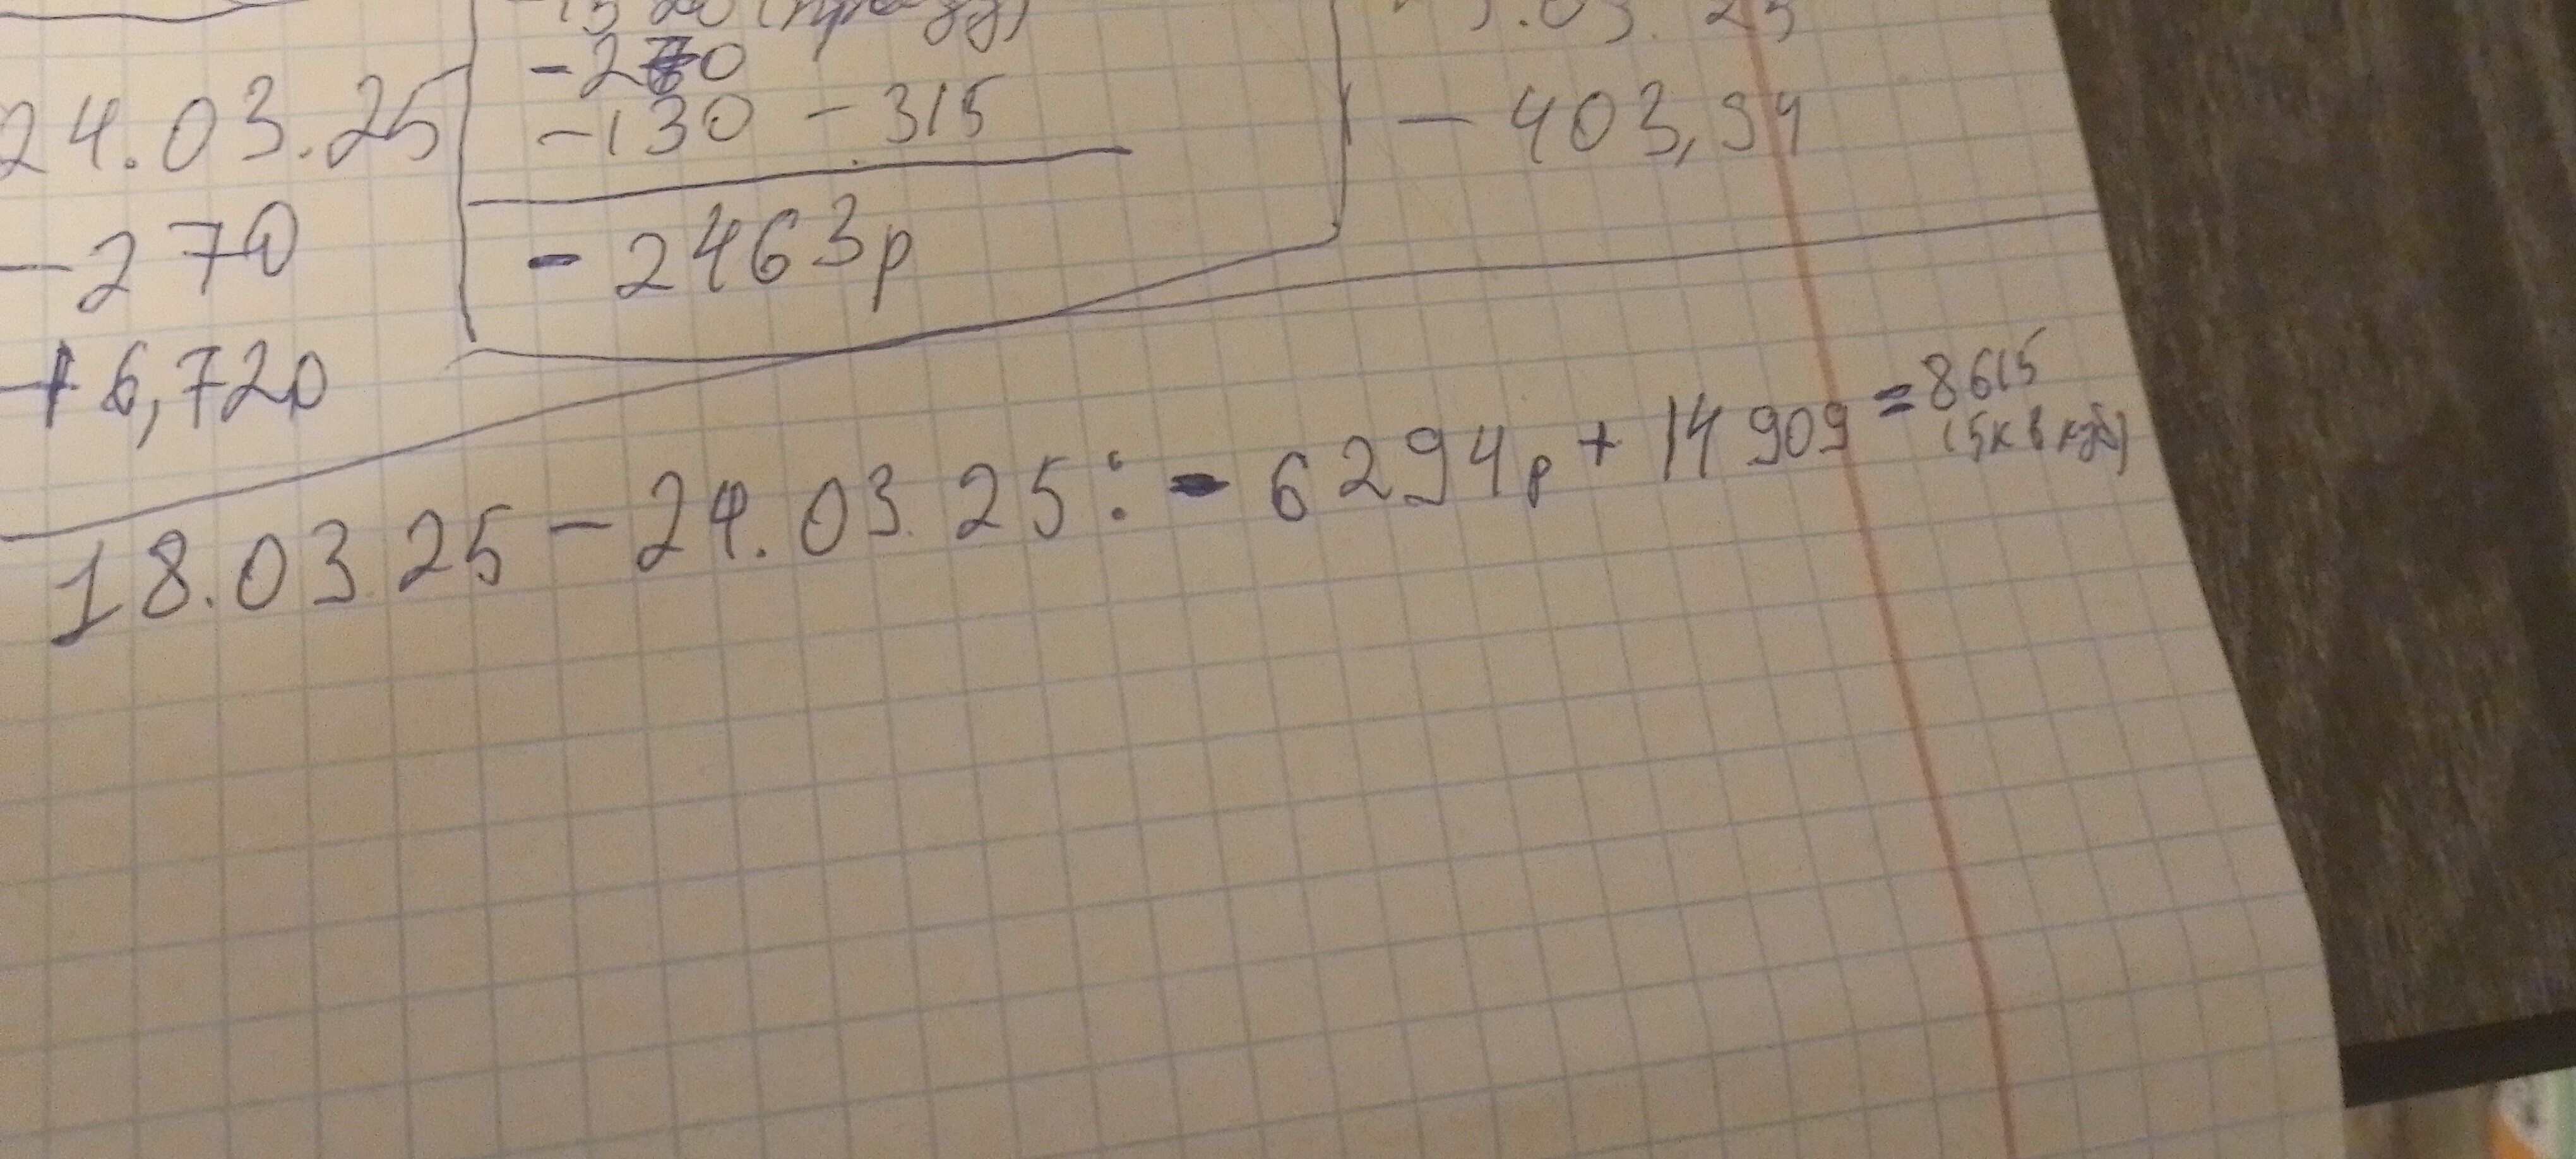 24.03.25
- 270
+ 6,720
-130 - 315
- 2463р
- 403,94
18.03.25 - 24.03.25: - 6294р + 14909 = 8615
(5к в куб)